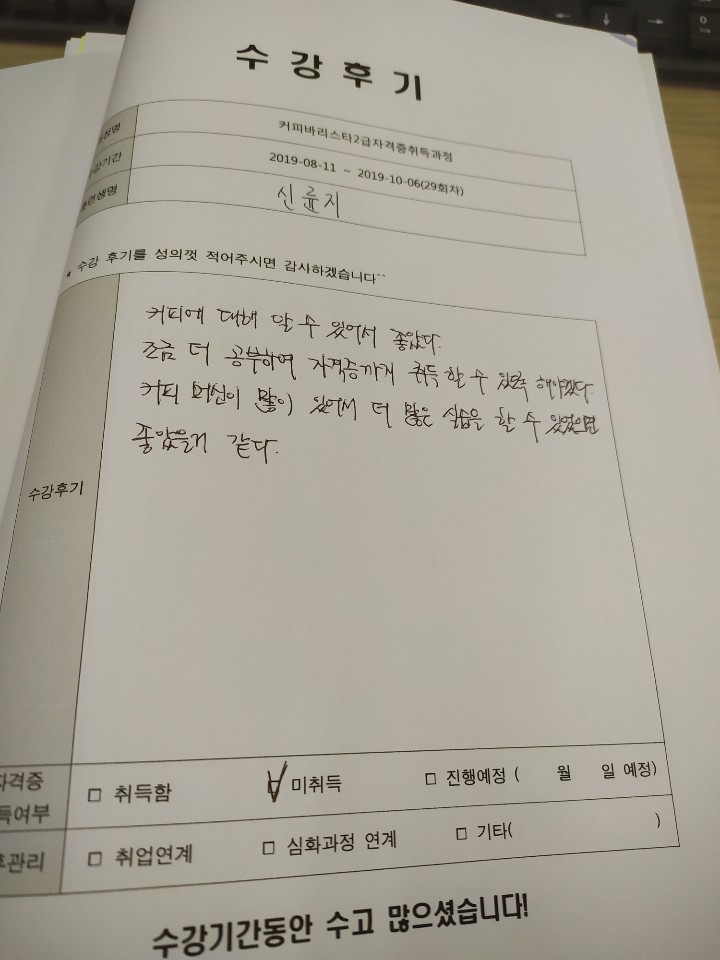 수강후기
과정명 커피바리스타2급자격증취득과정
수강기간 2019-08-11 ~ 2019-10-06(29회차)
훈련생명 신륜지
* 수강 후기를 성의껏 적어주시면 감사하겠습니다^^
커피에 대해 알 수 있어서 좋았다.
조금 더 공부하여 자격증까지 취득 할 수 있도록 해야겠다.
커피 머신이 많이 있어서 더 많은 실습을 할 수 있었으면
좋았을거 같다.
수강후기
자격증 □ 취득함 □ 미취득 □ 진행예정 ( 월 일 예정)
득여부
후관리 □ 취업연계 □ 심화과정 연계 □ 기타( )
수강기간동안 수고 많으셨습니다!